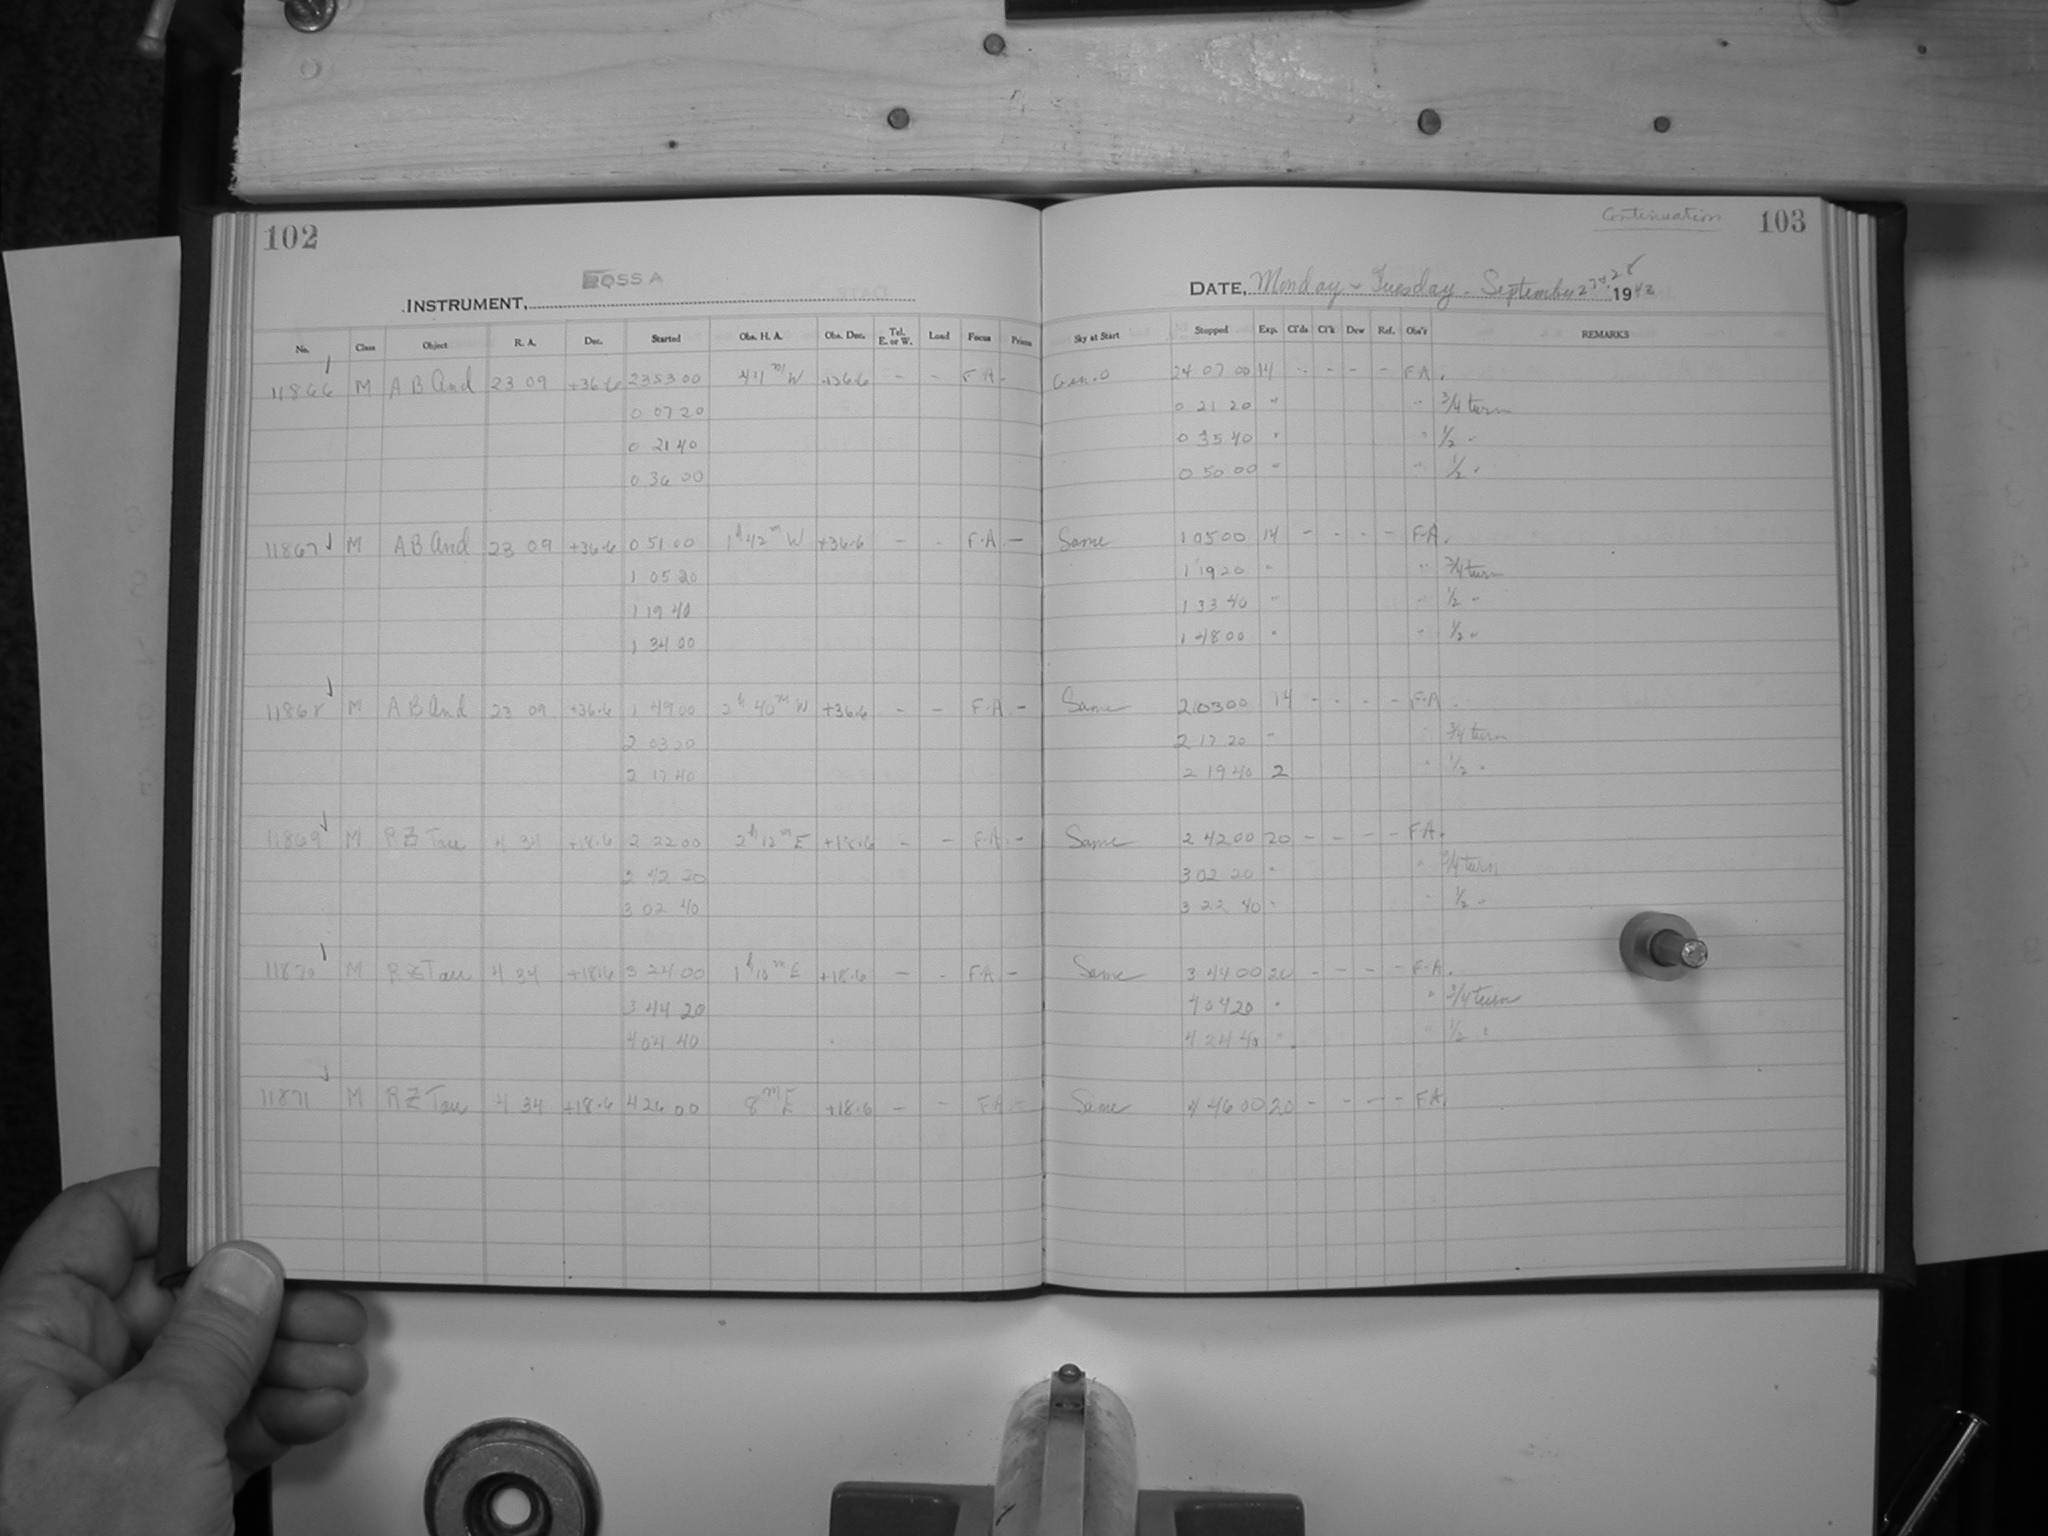 102
ROSS A
INSTRUMENT,
No. Class Object R. A. Dec. Started Obs. H. A. Obs. Dec. Tel. E. or W. Load Focus Prism
11866 M AB And 23 09 +36.6 23 53 00 44m W +36.6 - - F.A. -
0 07 20
0 21 40
0 36 00
11867 M AB And 23 09 +36.6 0 51 00 1h 42m W +36.6 - - F.A. -
1 05 20
1 19 40
1 34 00
11868 M AB And 23 09 +36.6 1 49 00 2h 40m W +36.6 - - F.A. -
2 03 20
2 17 40
11869 M RZ Tau 4 34 +18.6 2 22 00 2h 12m E +18.6 - - F.A. -
2 42 20
3 02 40
11870 M RZ Tau 4 34 +18.6 3 24 00 1h 10m E +18.6 - - F.A. -
3 44 20
4 04 40
11871 M RZ Tau 4 34 +18.6 4 26 00 8m E +18.6 - - F.A. -
Continuation 103
DATE, Monday - Tuesday - September 27th, 28 1943
Sky at Start Stopped Exp. Cl'ds Cl'k Dew Ref. Obs'r REMARKS
24 07 00 14 - - - - F.A.
0 21 20 " " 3/4 turn
0 35 40 " " 1/2 "
0 50 00 " " 1/2 "
Same 1 05 00 14 - - - - F.A.
1 19 20 " " 3/4 turn
1 33 40 " " 1/2 "
1 48 00 " " 1/2 "
Same 2 03 00 14 - - - - F.A.
2 17 20 " " 3/4 turn
2 19 40 2 " 1/2 "
Same 2 42 00 20 - - - - F.A.
3 02 20 " " 3/4 turn
3 22 40 " " 1/2 "
Same 3 44 00 20 - - - - F.A.
4 04 20 " " 3/4 turn
4 24 40 " " 1/2 "
Same 4 46 00 20 - - - - F.A.